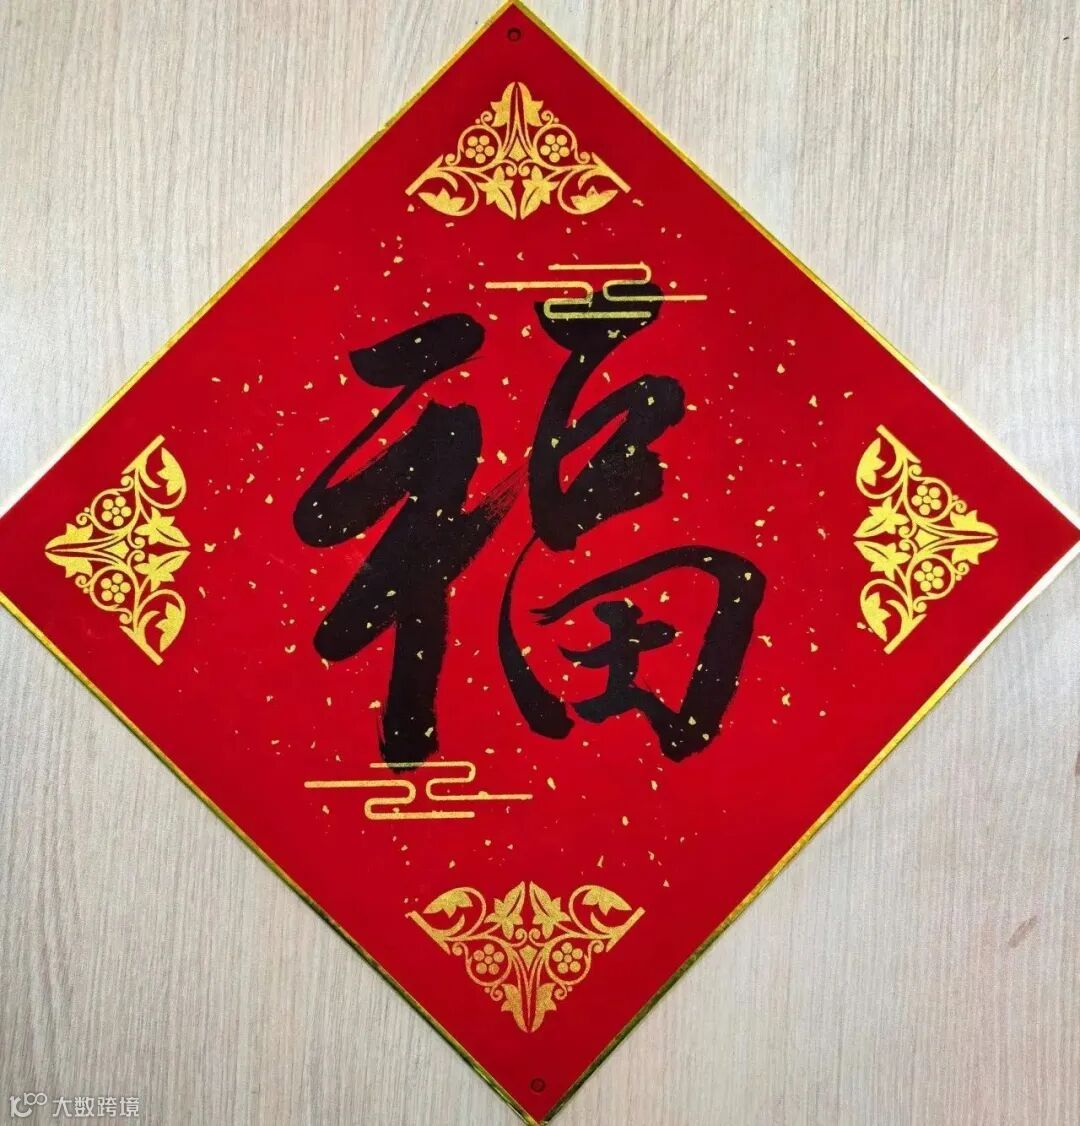 福
大数跨境